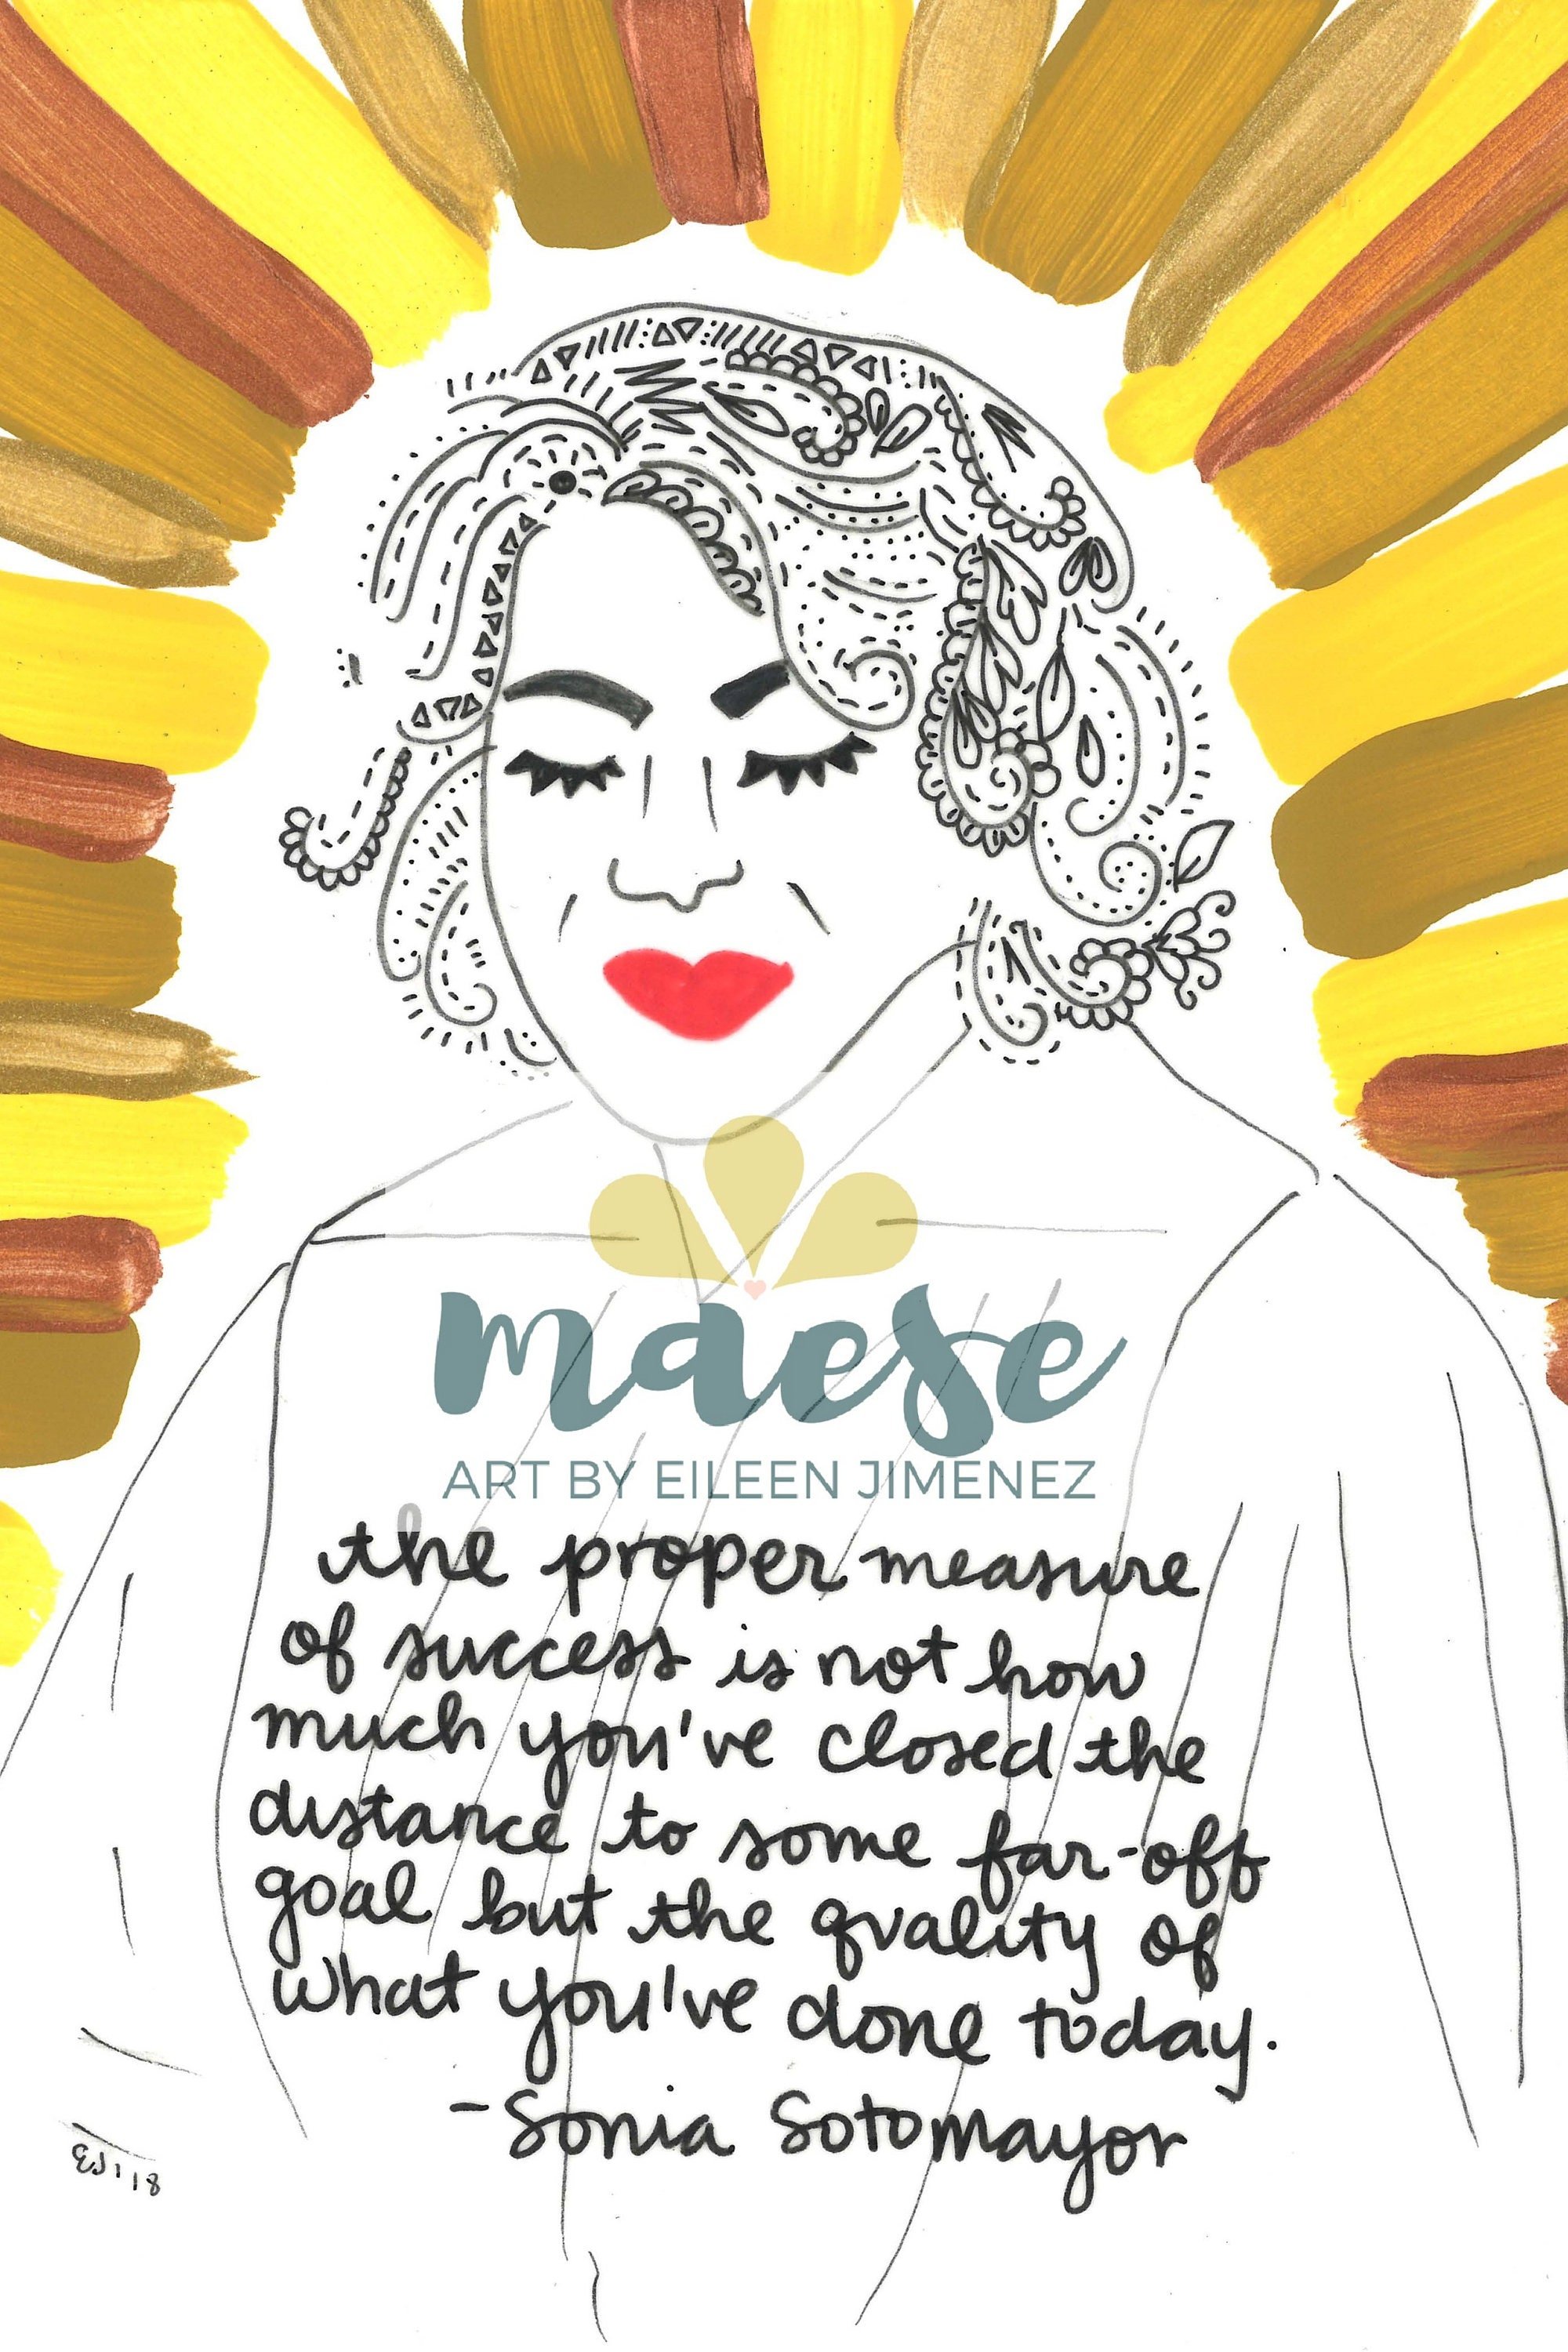 maese
ART BY EILEEN JIMENEZ
the proper measure
of success is not how
much you've closed the
distance to some far-off
goal but the quality of
what you've done today.
-Sonia Sotomayor
EJ '18